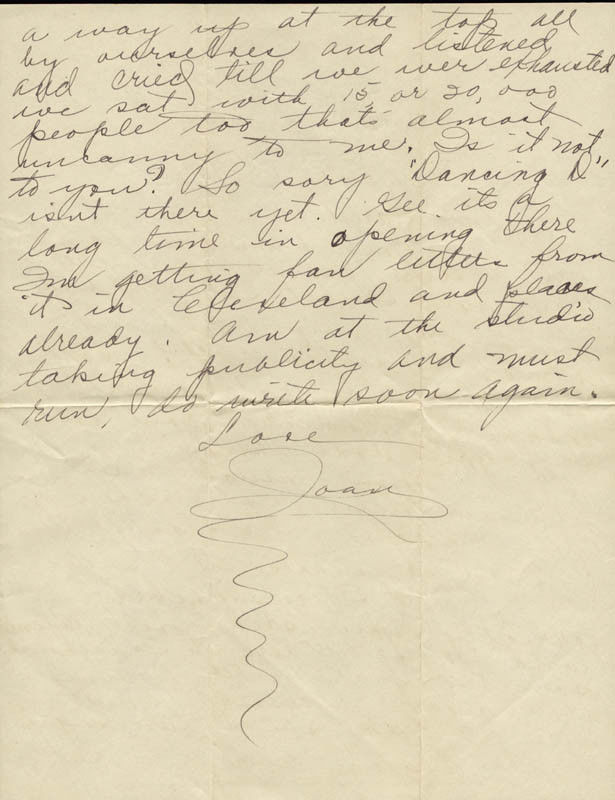 a way up at the top all
by ourselves and listened
and cried till we wer exhausted
we sat with 15, or 20,000
people too that's almost
uncanny to me. Is it not
to you? So sory "Dancing D"
isn't there yet. Gee its a
long time in opening there
I'm getting fan letters from
it in Cleveland and places
already. Am at the studio
taking publicity and must
run, do write soon again.
Love
Joan